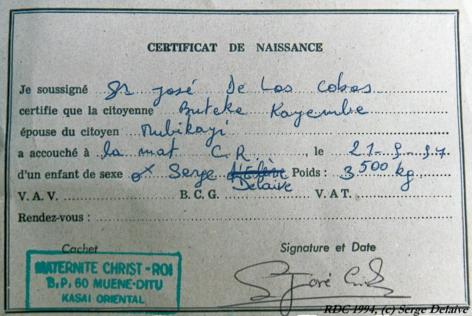 CERTIFICAT DE NAISSANCE
Je soussigné Sr José De Los Cobos
certifie que la citoyenne Buteke Kayembe
épouse du citoyen Mubikayi
a accouché à la mat C.R. , le
d'un enfant de sexe Serge Delaive Poids : 3 500 kg
V. A. V. B. C. G. V. A T.
Rendez-vous :
Cachet Signature et Date
MATERNITE CHRIST-ROI
B.P. 60 MUENE-DITU
KASAI ORIENTAL
José
RDC 1994, (c) Serge Delaive